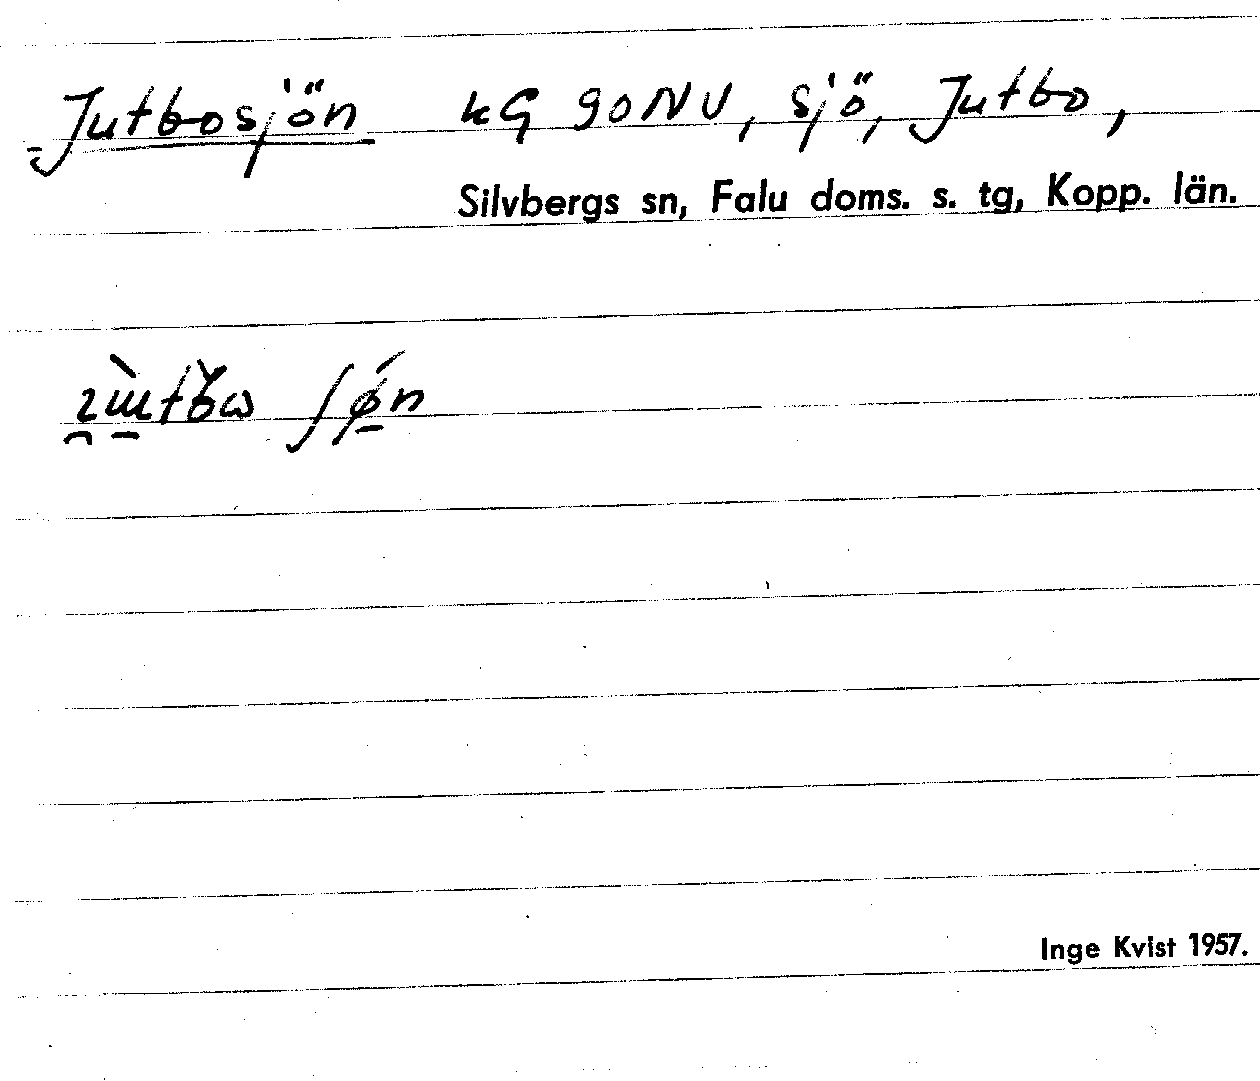 Jutbosjön kG 90NV, sjö, Jutbo,
Silvbergs sn, Falu doms. s. tg, Kopp. län.
Inge Kvist 1957.